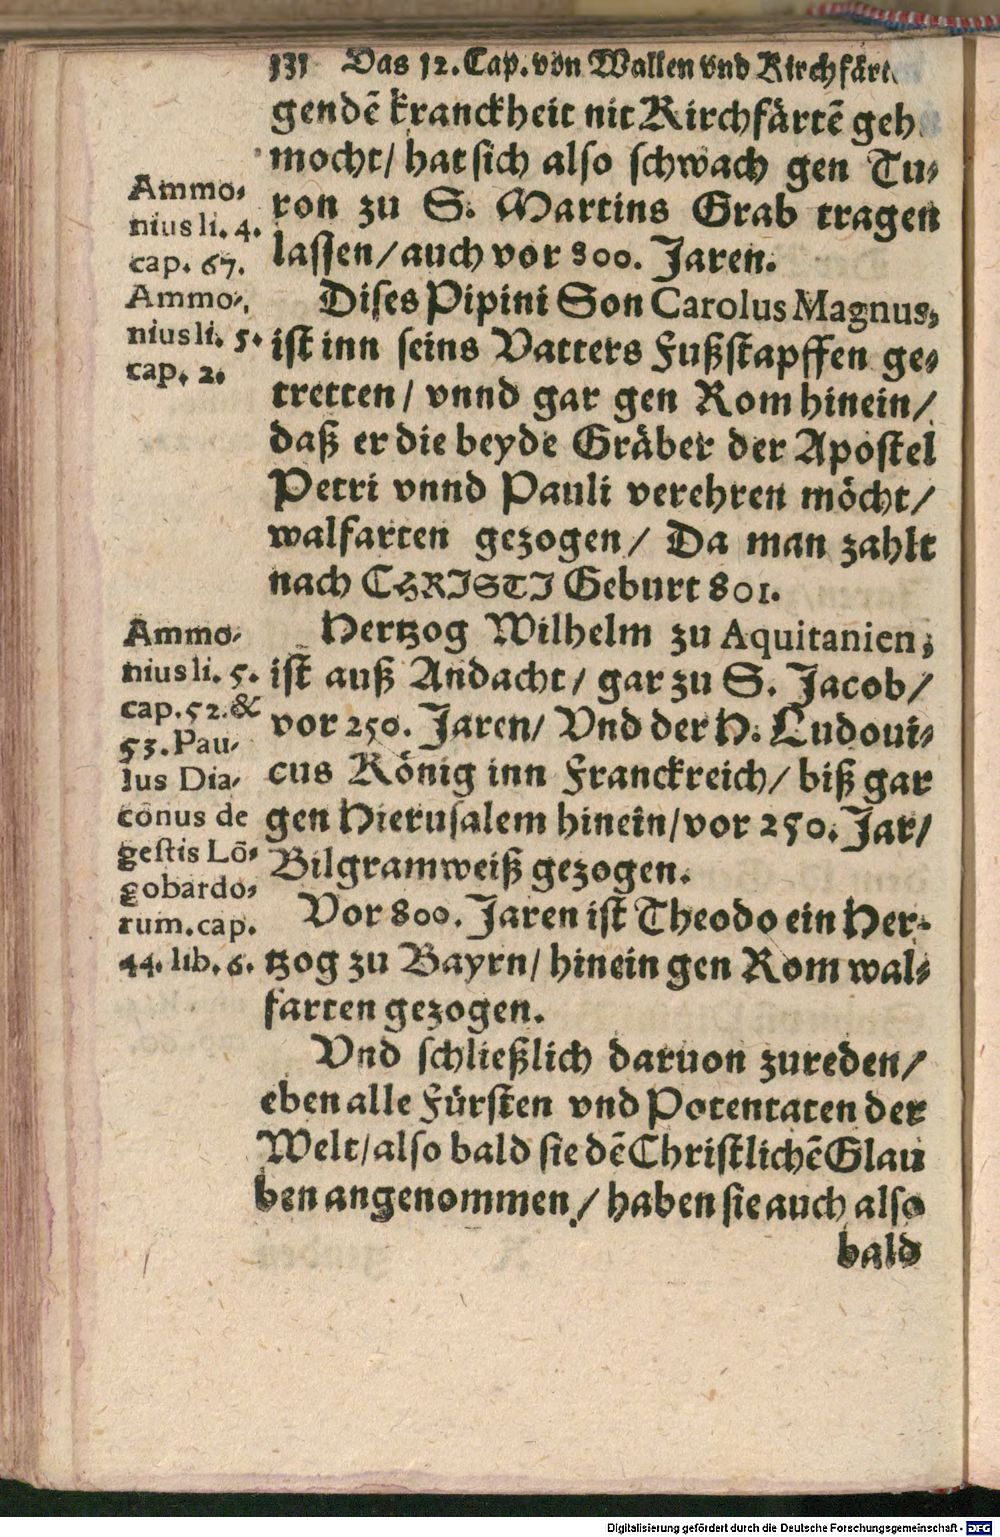 131 Das 12. Cap. von Wallen vnd Kirchfärt
gendē kranckheit nit Kirchfärtē geh
mocht/ hat sich also schwach gen Tu-
ron zu S. Martins Grab tragen
lassen/ auch vor 800. Jaren.
Ammo-
nius li. 4.
cap. 67.
Dises Pipini Son Carolus Magnus,
ist inn seins Vatters Fußstapffen ge-
tretten/ vnnd gar gen Rom hinein/
daß er die beyde Gräber der Apostel
Petri vnnd Pauli verehren möcht/
walfarten gezogen/ Da man zahlt
nach CHRISTI Geburt 801.
Ammo-
nius li. 5.
cap. 2.
Hertzog Wilhelm zu Aquitanien,
ist auß Andacht/ gar zu S. Jacob/
vor 250. Jaren/ Vnd der H. Ludoui-
cus König inn Franckreich/ biß gar
gen Hierusalem hinein/ vor 250. Jar/
Bilgramweiß gezogen.
Ammo-
nius li. 5.
cap. 52. &
53. Pau-
lus Dia-
conus de
gestis Lō-
gobardo-
rum. cap.
44. lib. 6.
Vor 800. Jaren ist Theodo ein Her-
tzog zu Bayrn/ hinein gen Rom wal-
farten gezogen.
Vnd schließlich daruon zureden/
eben alle Fürsten vnd Potentaten der
Welt/ also bald sie dē Christlichē Glau
ben angenommen/ haben sie auch also
bald
Digitalisierung gefördert durch die Deutsche Forschungsgemeinschaft - DFG